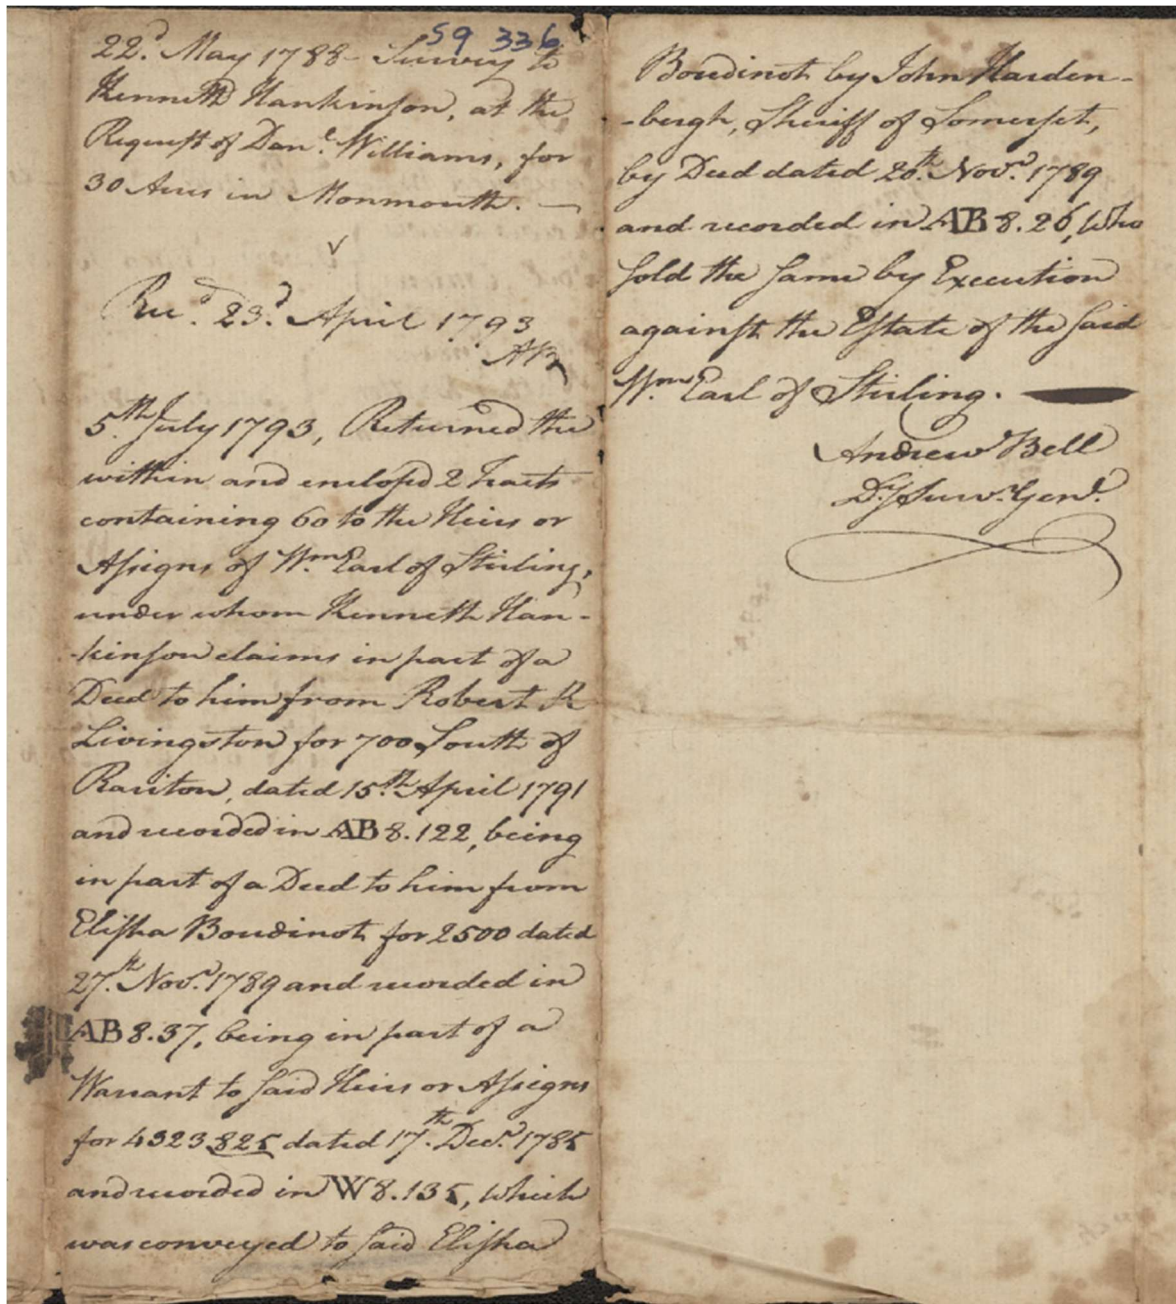 S9 336
22d. May 1788 - Survey to
Kenneth Hankinson, at the
Request of Danl. Williams, for
30 Acres in Monmouth. —
Recd. 23d. April 1793
AB
5th. July 1793, Returned the
within and enclosed 2 Tracts
containing 60 to the Heirs or
Assigns of Wm. Earl of Stirling,
under whom Kenneth Han-
-kinson claims in part of a
Deed to him from Robert R
Livingston for 700 South of
Rariton, dated 15th. April 1791
and recorded in AB 8.122, being
in part of a Deed to him from
Elisha Boudinot for 2500 dated
27th. Novr. 1789 and recorded in
AB 8.37, being in part of a
Warrant to said Heirs or Assigns
for 4323 825 dated 17th. Decr. 1785
and recorded in W 8.135, which
was conveyed to said Elisha
Boudinot by John Harden-
-bergh, Sheriff of Somerset,
by Deed dated 20th. Novr. 1789
and recorded in AB 8.26, who
sold the same by Execution
against the Estate of the said
Wm. Earl of Stirling. —
Andrew Bell
Dy. Survr. Genl.